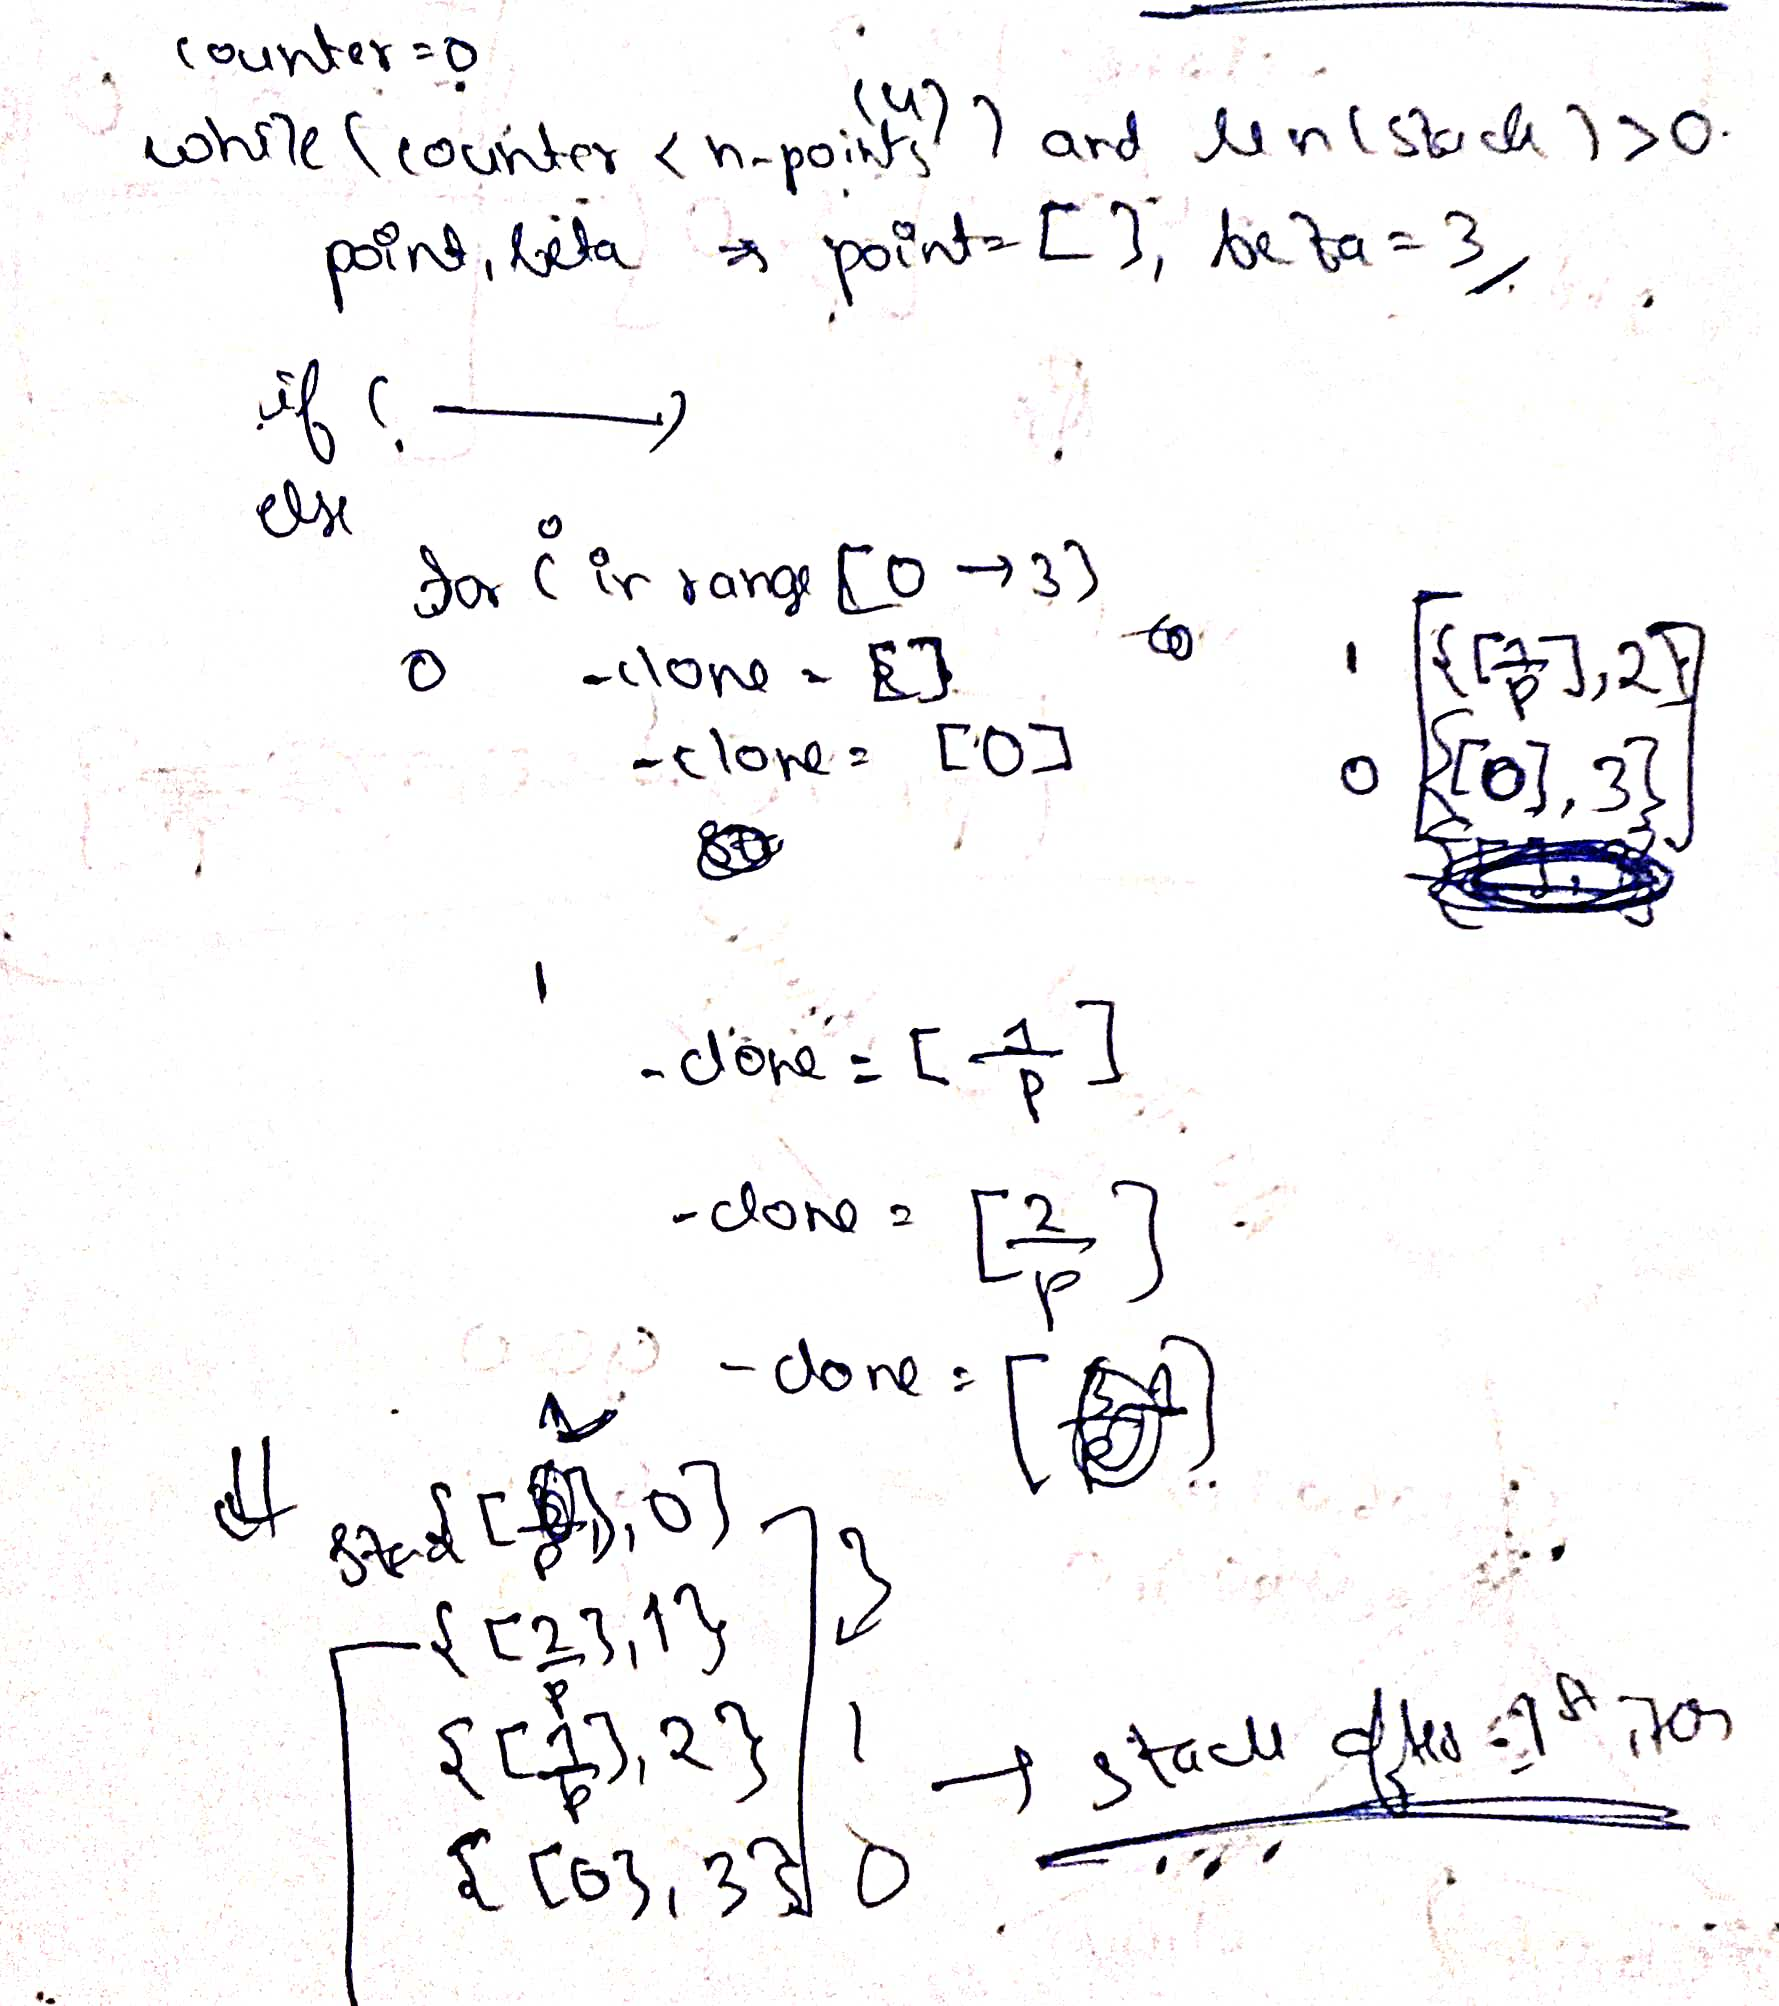 counter=0
(4)
while (counter < n-points) and len(stack)>0.
point, beta → point= [ ], beta = 3
if ( )
else
for i in range [0 → 3]
0 -clone = [ ]
-clone = [0]
1 {[1/p], 2}
0 {[0], 3}
1
-clone = [1/p]
-clone = [2/p]
-clone = [ ]
stack {[ /p], 0}
{[2/p], 1}
{[1/p], 2} 1 → stack after 1st
{[0], 3} 0